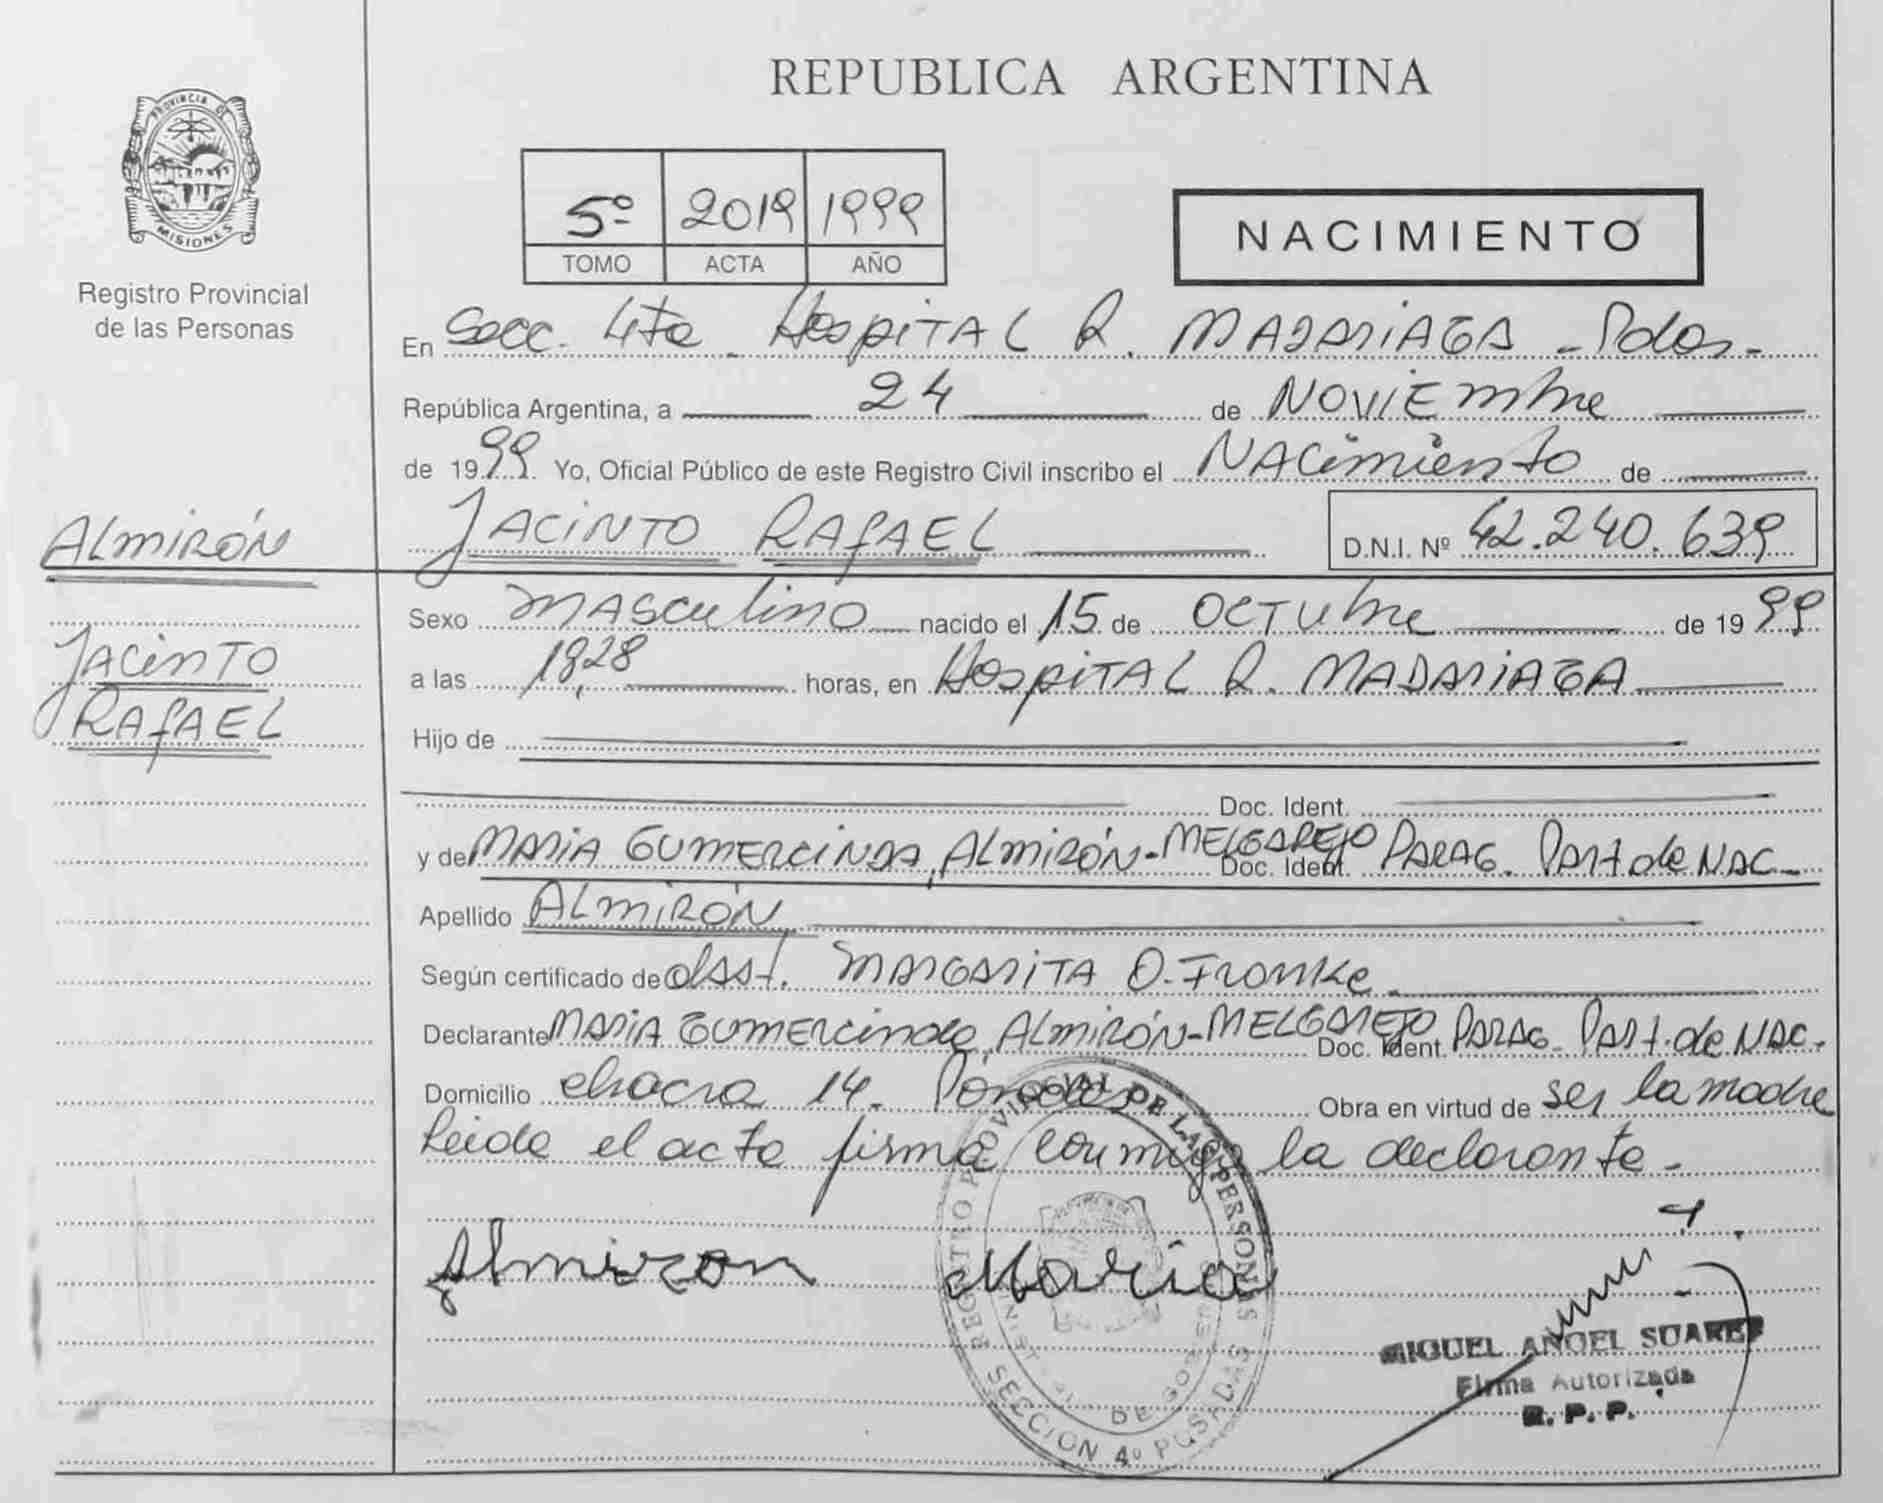 REPUBLICA ARGENTINA
PROVINCIA DE MISIONES
Registro Provincial
de las Personas
5º 2019 1999
TOMO ACTA AÑO
NACIMIENTO
En Secc. 4ta Hospital R. MADARIAGA - Pdas -
República Argentina, a 24 de NOVIEmbre
de 1999 Yo, Oficial Público de este Registro Civil inscribo el NACimiento de
JACINTO RAfAEL D.N.I. Nº 42.240.639
ALmiRÓN
JACinTO
RAfAEL
Sexo mASculino nacido el 15 de OCTubre de 1999
a las 18,28 horas, en HospiTAL R. MADARiAGA
Hijo de
Doc. Ident.
y de MARiA GUMERCiNDA, ALmiRÓN - MELGAREJO Doc. Ident. PARAG. Part. de NAC -
Apellido ALmiRÓN
Según certificado de obst. MARGARiTA O. Fromke
Declarante MARiA GUMERCinda, ALmiRÓN - MELGAREJO Doc. Ident. PARAG. Part. de NAC.
Domicilio chacra 14. Posadas Obra en virtud de ser la madre
Leida el acta firma conmigo la declarante -
Almiron Maria
REGISTRO PROVINCIAL DE LAS PERSONAS
SECCION 4º POSADAS
MIGUEL ANGEL SUAREZ
Firma Autorizada
R. P. P.